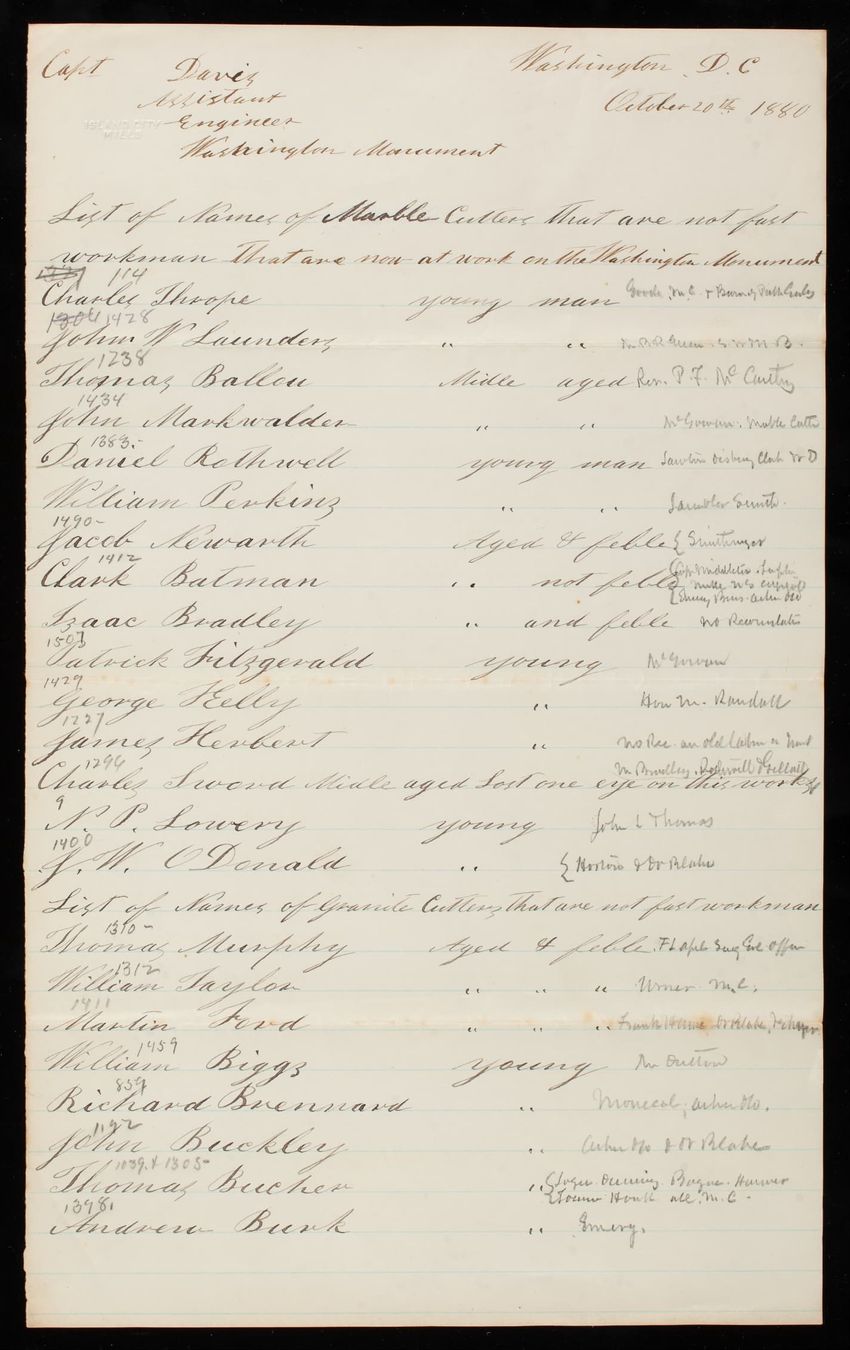 Capt Davis Washington D.C
Assistant October 20th 1880
Engineer
ISLAND CITY
MILLS
Washington Monument
List of Names of Marble Cutters that are not fast
workman that are now at work on the Washington Monument
114
Charles Thrope young man Goode, M.C. +
1304 1428
John W Saunders " "
1238
Thomas Ballou Midle aged Rev. P. F. McCarthy
1434
John Markwalder " " McGowan.
1383.-
Daniel Rothwell young man
William Perkins " " Smith.
1490-
Jacob Newarth Aged & feble
1412
Clark Batman " not feble
Izaac Bradley " and feble no
1507
Patrick Fitzgerald young McGowan
1429
George Kelly " Hon M. Randall
1227
James Herbert " no Rec. an old
1296
Charles Sword Midle aged Lost one eye on this work
9
N. P. Lowery young John L Thomas
1400
J. W. ODonald " & Dr Blake
List of Names of Granite Cutters that are not fast workman
1310-
Thomas Murphy Aged & feble.
1312
William Taylor " " " Urner M.C.
1411
Martin Ford " " " Frank Hume Dr Blake,
1459
William Biggs young Dutton
859
Richard Brennard "
1192
John Buckley " & Dr Blake
1039. & 1305-
Thomas Bucher " all M.C -
1398.
Andrew Burk " Emery.